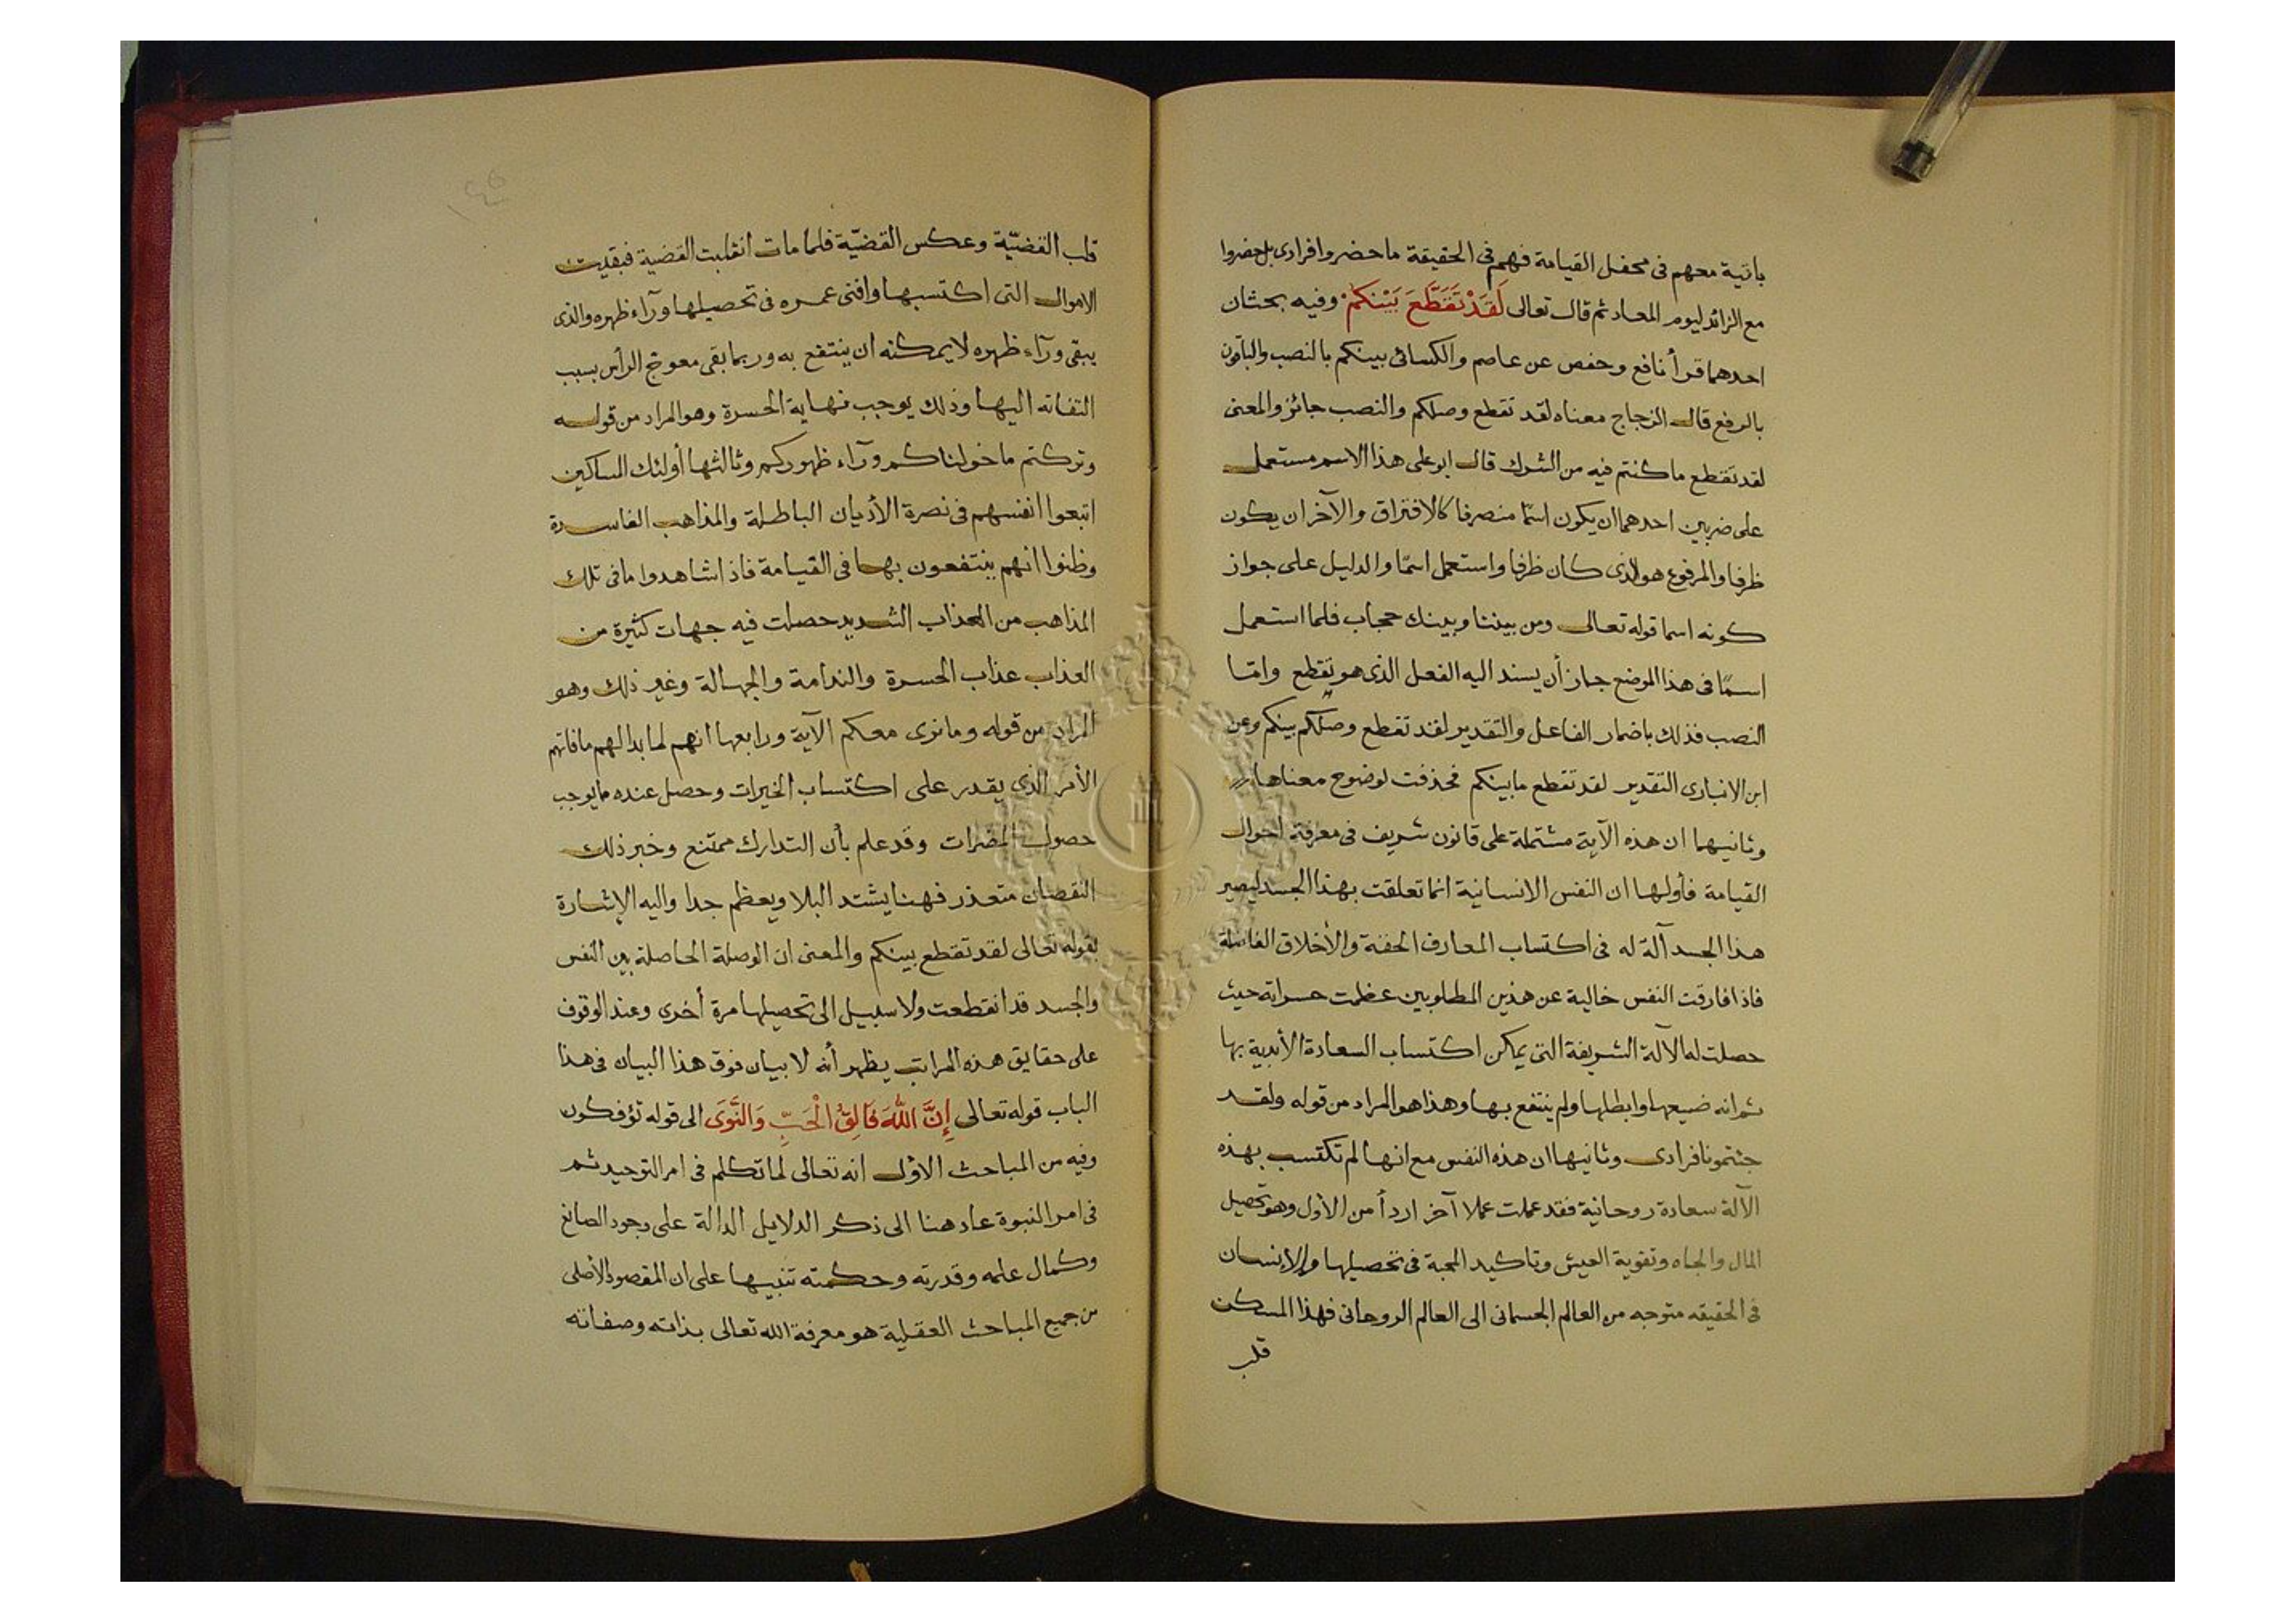 باقية معهم فى محفل القيامة فهم فى الحقيقة ما حضروا فرادى بل حضروا
مع الزائد ليوم المعاد ثم قال تعالى لَقَدْ تَقَطَّعَ بَيْنَكُمْ وفيه بحثان
احدهما قرأ نافع وحفص عن عاصم والكسائى بينكم بالنصب والباقون
بالرفع قال الزجاج معناه لقد تقطع وصلكم والنصب جائز والمعنى
لقد تقطع ما كنتم فيه من الشرك قال ابو على هذا الاسم مستعمل
على ضربين احدهما ان يكون اسمًا منصرفا كالافتراق والآخر ان يكون
ظرفا والمرفوع هو الذى كان ظرفا واستعمل اسمًا والدليل على جواز
كونه اسما قوله تعالى ومن بيننا وبينك حجاب فلما استعمل
اسمًا فى هذا الموضع جاز أن يسند اليه الفعل الذى هو تقطع وامّا
النصب فذلك باضمار الفاعل والتقدير لقد تقطع وصلكم بينكم وعن
ابن الانبارى التقدير لقد تقطع ما بينكم فحذفت لوضوح معناها
وثانيهما ان هذه الآية مشتملة على قانون شريف فى معرفة احوال
القيامة فأولها ان النفس الانسانية انما تعلقت بهذا الجسد ليصير
هذا الجسد آلة له فى اكتساب المعارف الحقة والأخلاق الفاضلة
فاذا فارقت النفس خالية عن هذين المطلوبين عظمت حسراته حيث
حصلت له الآلة الشريفة التى يمكن اكتساب السعادة الأبدية بها
ثم انه ضيعها وابطلها ولم ينتفع بها وهذا هو المراد من قوله ولقد
جئتمونا فرادى وثانيها ان هذه النفس مع انها لم تكتسب بهذه
الآلة سعادة روحانية فقد عملت عملا آخر اردأ من الأول وهو تحصيل
المال والجاه وتقوية العيش وتاكيد المحبة فى تحصيلها والإنسان
فى الحقيقه متوجه من العالم الجسمانى الى العالم الروحانى فهذا المسكن
قلب
قلب القضيّة وعكس القضيّة فلما مات انقلبت القضية فبقيت
الاموال التى اكتسبها وافنى عمره فى تحصيلها ورآء ظهره والذى
يبقى ورآء ظهره لا يمكنه ان ينتفع به وربما بقى معوج الرأس بسبب
التفاته اليها وذلك يوجب نهاية الحسرة وهو المراد من قوله
وتركتم ما خولناكم ورآء ظهوركم وثالثها أولئك المساكين
اتبعوا انفسهم فى نصرة الأديان الباطلة والمذاهب الفاسدة
وظنوا انهم ينتفعون بها فى القيامة فاذا شاهدوا ما فى تلك
المذاهب من العذاب الشديد حصلت فيه جهات كثيرة من
العذاب عذاب الحسرة والندامة والجهالة وغير ذلك وهو
المراد من قوله وما نرى معكم الآية ورابعها انهم لما بدا لهم ما فاتهم
الأمر الذى يقدر على اكتساب الخيرات وحصل عنده ما يوجب
حصول المضرات وقد علم بأن التدارك ممتنع وخبر ذلك
النقصان متعذر فهنا يشتد البلا ويعظم جدا واليه الإشارة
بقوله تعالى لقد تقطع بينكم والمعنى ان الوصلة الحاصلة بين النفس
والجسد قد انقطعت ولا سبيل الى تحصيلها مرة أخرى وعند الوقوف
على حقايق هذه المراتب يظهر أنه لا بيان فوق هذا البيان فى هذا
الباب قوله تعالى إِنَّ اللَّهَ فَالِقُ الْحَبِّ وَالنَّوَى الى قوله تؤفكون
وفيه من المباحث الاوّل انه تعالى لما تكلم فى امر التوحيد ثم
فى امر النبوة عاد هنا الى ذكر الدلايل الدالة على وجود الصانع
وكمال علمه وقدرته وحكمته تنبيها على ان المقصود الأصلى
من جميع المباحث العقلية هو معرفة الله تعالى بذاته وصفاته